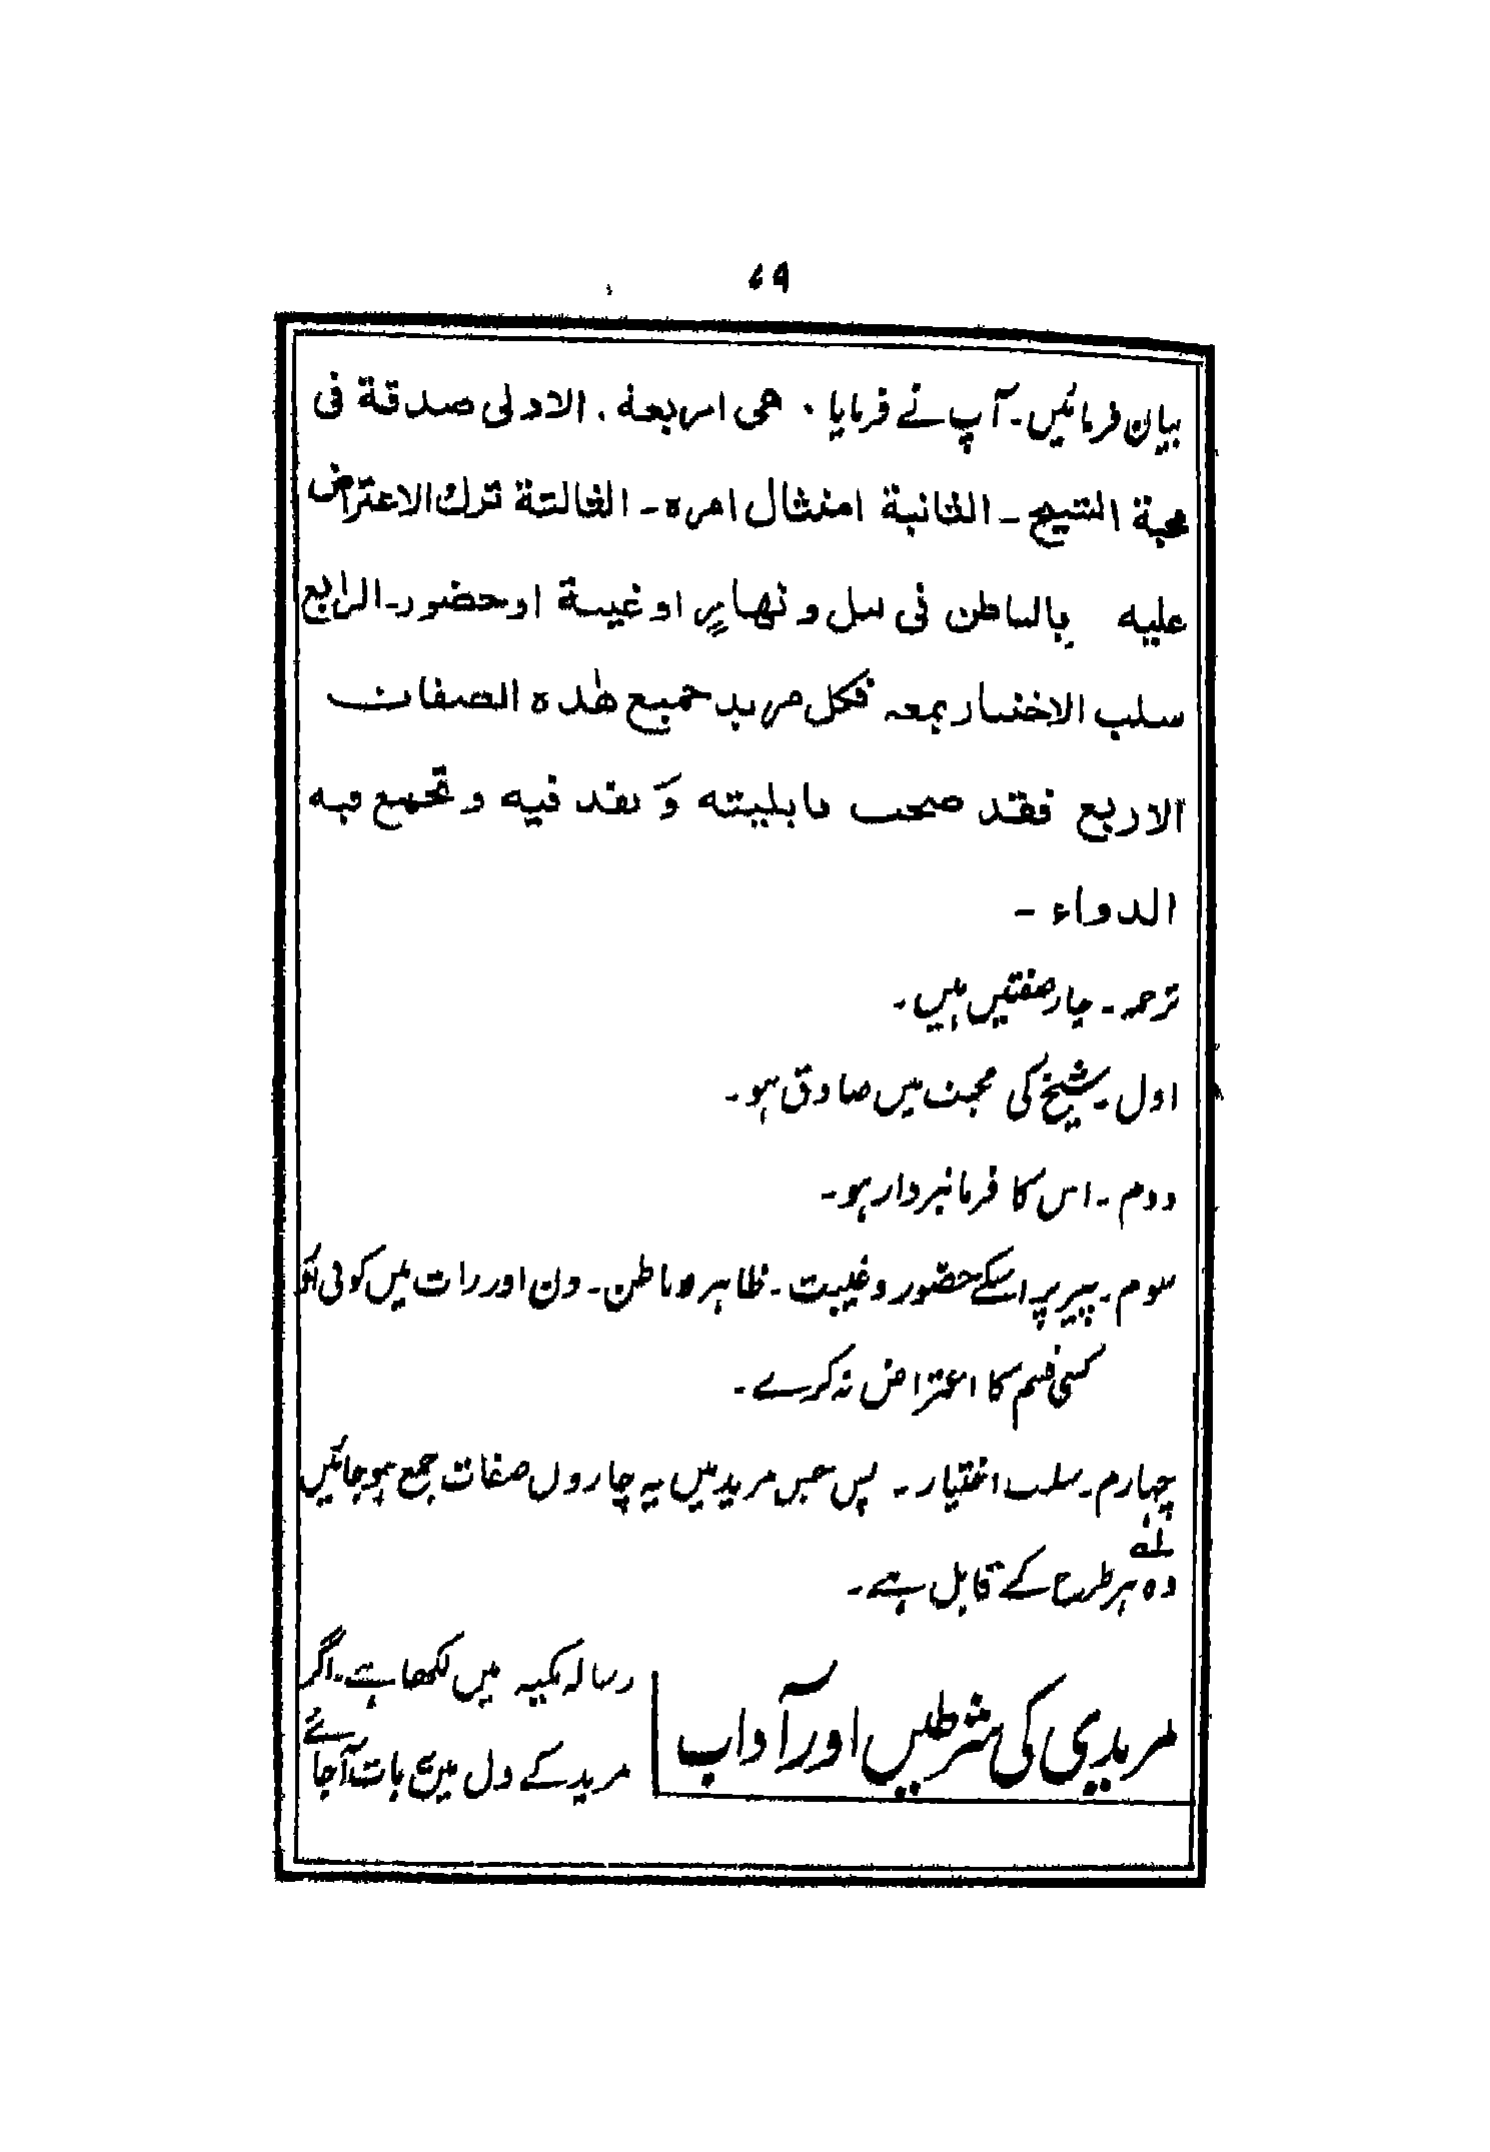 ۷۹
بیان فرمائیں۔ آپ نے فرمایا۔ ھی اربعة۔ الاولی صدقة فی
محبة الشیخ۔ الثانیة امتثال امرہ۔ الثالثة ترك الاعتراض
علیه بالباطن فی لیل و نهارٍ او غیبة او حضور۔ الرابع
سلب الاختیار بمعه فکل مرید جمیع ھٰذہ الصفات
الاربع فقد صحب قابلیته و نفد فیه و تجمع فیه
الدواء۔
ترجمہ۔ چار صفتیں ہیں۔
اول۔ شیخ کی محبت میں صادق ہو۔
دوم۔ اس کا فرمانبردار ہو۔
سوم۔ پیر پر اسکے حضور و غیبت۔ ظاہر و باطن۔ دن اور رات میں کوئی اور
کسی قسم کا اعتراض نہ کرے۔
چہارم۔ سلب اختیار۔ پس جس مرید میں یہ چاروں صفات جمع ہو جائیں
وہ ہر طرح کے قابل ہے۔
مریدی کی شرطیں اور آداب
رسالہ مکیہ میں لکھا ہے۔ اگر
مرید کے دل میں یہ بات آجائے